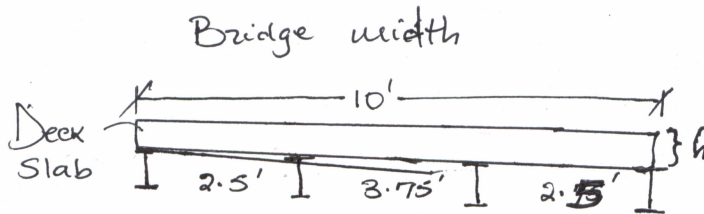 Bridge width
10'
Deck
Slab
2.5' 3.75'
h